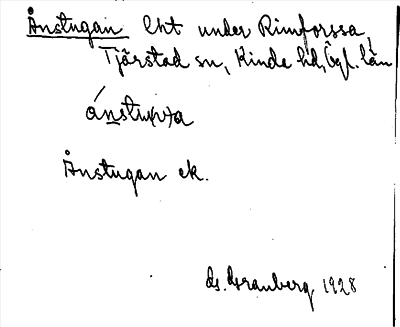 Ånstugan lht under Rimforssa,
Tjärstad sn, Kinda hd, Ögl. län
ánstu(v)a
Ånstugan ek.
G. Granberg 1928